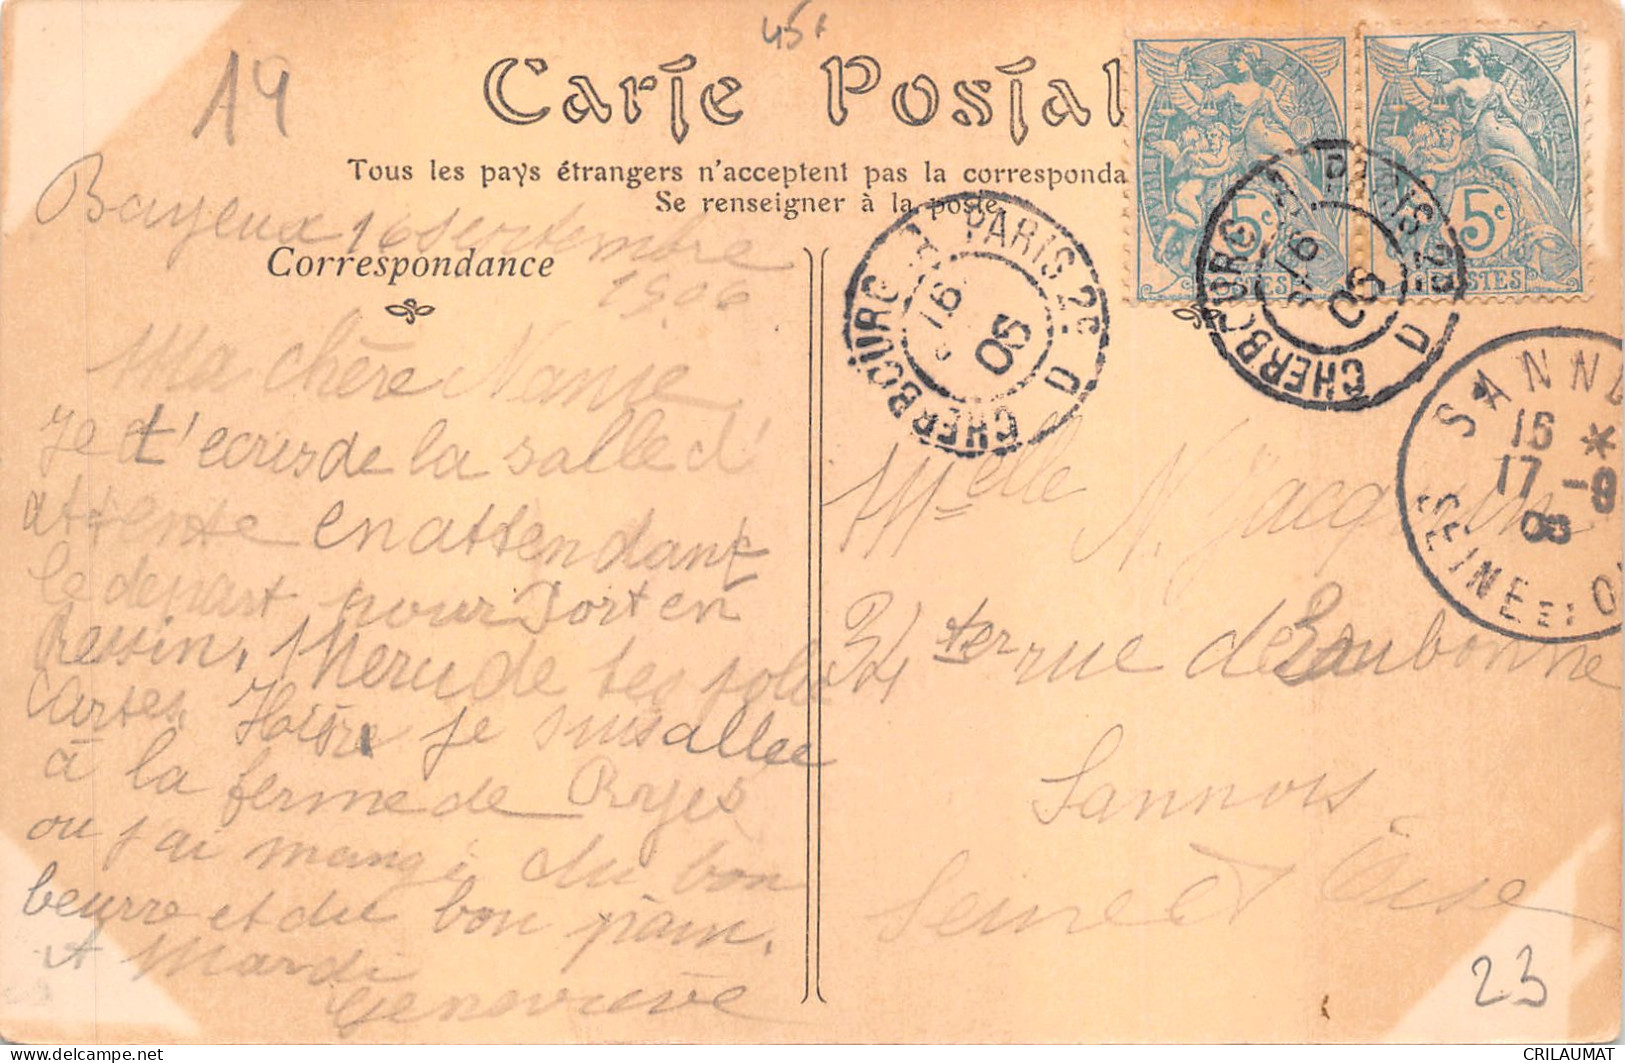 45f
A4
Carte Postal
Tous les pays étrangers n'acceptent pas la corresponda
Se renseigner à la poste
Correspondance
Bayeux 16 septembre
1906
Ma chère Nanie
Je t'ecris de la salle d'
attente en attendant
le depart pour Port en
Bessin. Merci de tes jolies
cartes. Hier je suis allee
à la ferme de Ryes
ou j'ai mangé du bon
beurre et du bon pain.
A Mardi
Geneviève
REPUBLIQUE FRANÇAISE
5c
POSTES
FRANÇAISE
5c
POSTES
CHERBOURG A PARIS 2° D
16
9
06
CHERBOURG A PARIS 2° D
16
9
06
SANNO
16 *
17 -9
06
SEINE ET OI
Melle N. Jacquin
34 ter rue de Eaubonne
Sannois
Seine et Oise
23
CRILAUMAT